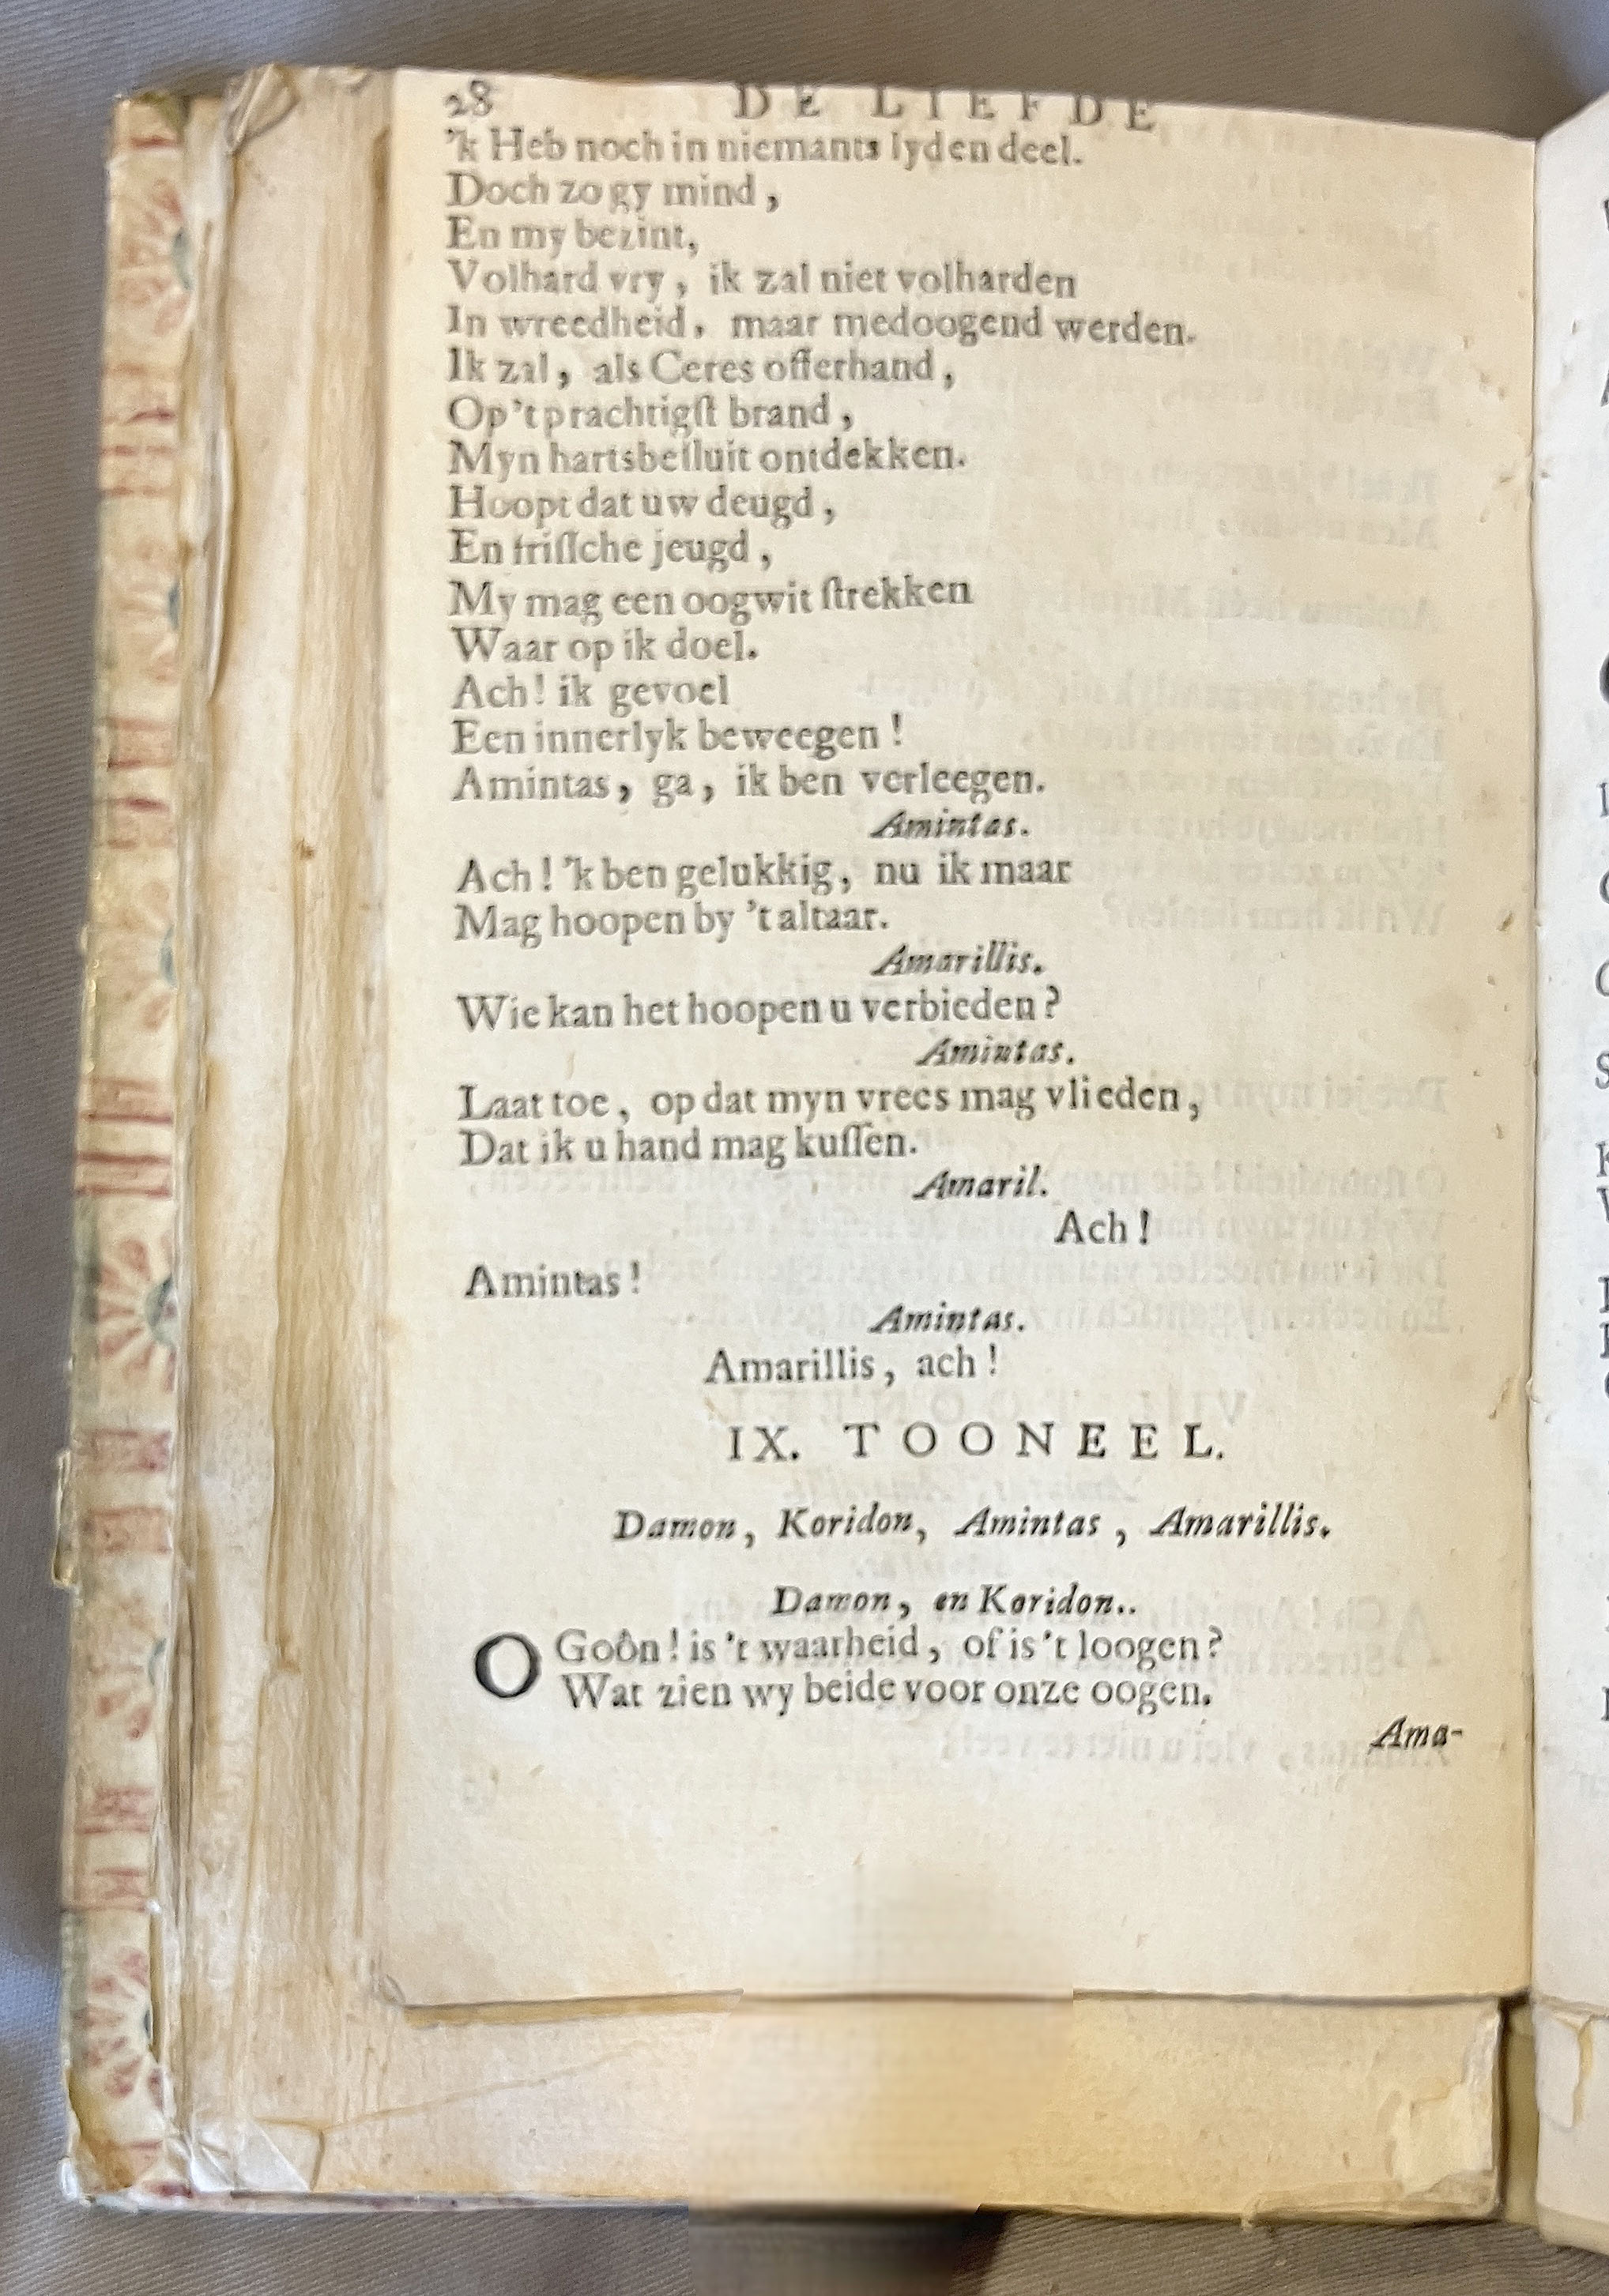 28 DE LIEFDE
'k Heb noch in niemants lyden deel.
Doch zo gy mind,
En my bezint,
Volhard vry, ik zal niet volharden
In wreedheid, maar medoogend werden.
Ik zal, als Ceres offerhand,
Op 't prachtigſt brand,
Myn hartsbeſluit ontdekken.
Hoopt dat uw deugd,
En friſſche jeugd,
My mag een oogwit ſtrekken
Waar op ik doel.
Ach! ik gevoel
Een innerlyk beweegen!
Amintas, ga, ik ben verleegen.
Amintas.
Ach! 'k ben gelukkig, nu ik maar
Mag hoopen by 't altaar.
Amarillis.
Wie kan het hoopen u verbieden?
Amintas.
Laat toe, op dat myn vrees mag vlieden,
Dat ik u hand mag kuſſen.
Amaril.
Ach!
Amintas!
Amintas.
Amarillis, ach!
IX. TOONEEL.
Damon, Koridon, Amintas, Amarillis.
Damon, en Koridon..
O Goôn! is 't waarheid, of is 't loogen?
Wat zien wy beide voor onze oogen.
Ama-